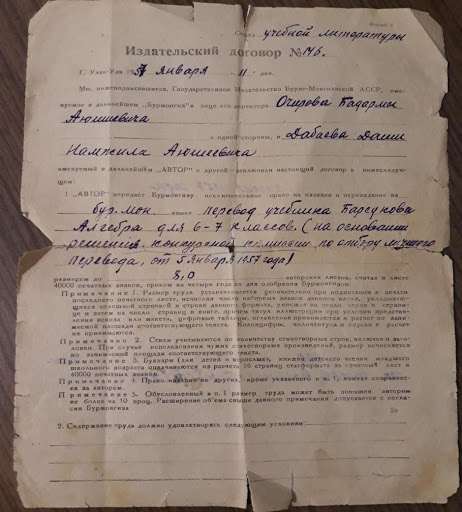 Форма
Отдел учебной литературы
Издательский договор № 7б.
Г. Улан-Удэ 1957 января 11 дня.
Мы, нижеподписавшиеся, Государственное Издательство Бурят-Монгольской АССР, име-
нуемое в дальнейшем „Бурмонгиз" в лице его директора Очирова Бадармы
Аюшиевича
с одной стороны, и Дабаева Даши
Намжила Аюшеевича
именуемый в дальнейшем „АВТОР" с другой заключили настоящий договор в нижеследую-
щем:
1 „АВТОР" передает Бурмонгизу исключительное право на издание и переиздание на
бур. мон. языке перевод учебника Барсукова
Алгебра для 6-7 классов. (на основании
решения конкурсной комиссии по отбору лучшего
перевода, от 5 января 1957 года)
размером до 8,0 авторских листов, считая в листе
40000 печатных знаков, сроком на четыре года со дня одобрения Бурмонгизом.
Примечание 1. Размер труда устанавливается окончательно при подписании к печати
последнего печатного листа, исчисляя число наборных знаков данного кегля, укладываю-
щихся сплошной строчкой в строке данного формата, умножая на число строк в страни-
це и затем на число страниц в книге, причем титул иллюстрации при условии представ-
ления эскиза или макета, цифровые таблицы, оглавление принимаются в расчет по зани-
маемой площади соответствующего текста. Колонцифры, колонтитула и спуски в расчет
не принимаются.
Примечание 2. Стихи учитываются по количеству стихотворных строк, включая и заго-
ловки. При случае использования чужих стихотворных произведений, размер исчисляется
по занимаемой площади соответствующего текста.
Примечание 3. Буквари (для детей и взрослых), книжки детского чтения младшего
школьного возраста оплачиваются из расчета 16 страниц стандартных за печатный лист в
40000 печатных знаков.
Примечание 4. Право издания на других, кроме указанного в п. 1, языках сохраняет-
ся за автором.
Примечание 5. Обусловленный в п. 1 размер труда может быть повышен автором
не более на 10 проц. Расширение объема свыше данного примечания допускается с согла-
сия Бурмонгиза
2. Содержание труда должно удовлетворять следующим условиям